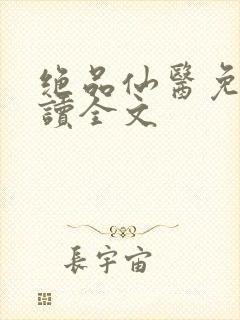 绝品仙醫免
讀全文
長宇宙